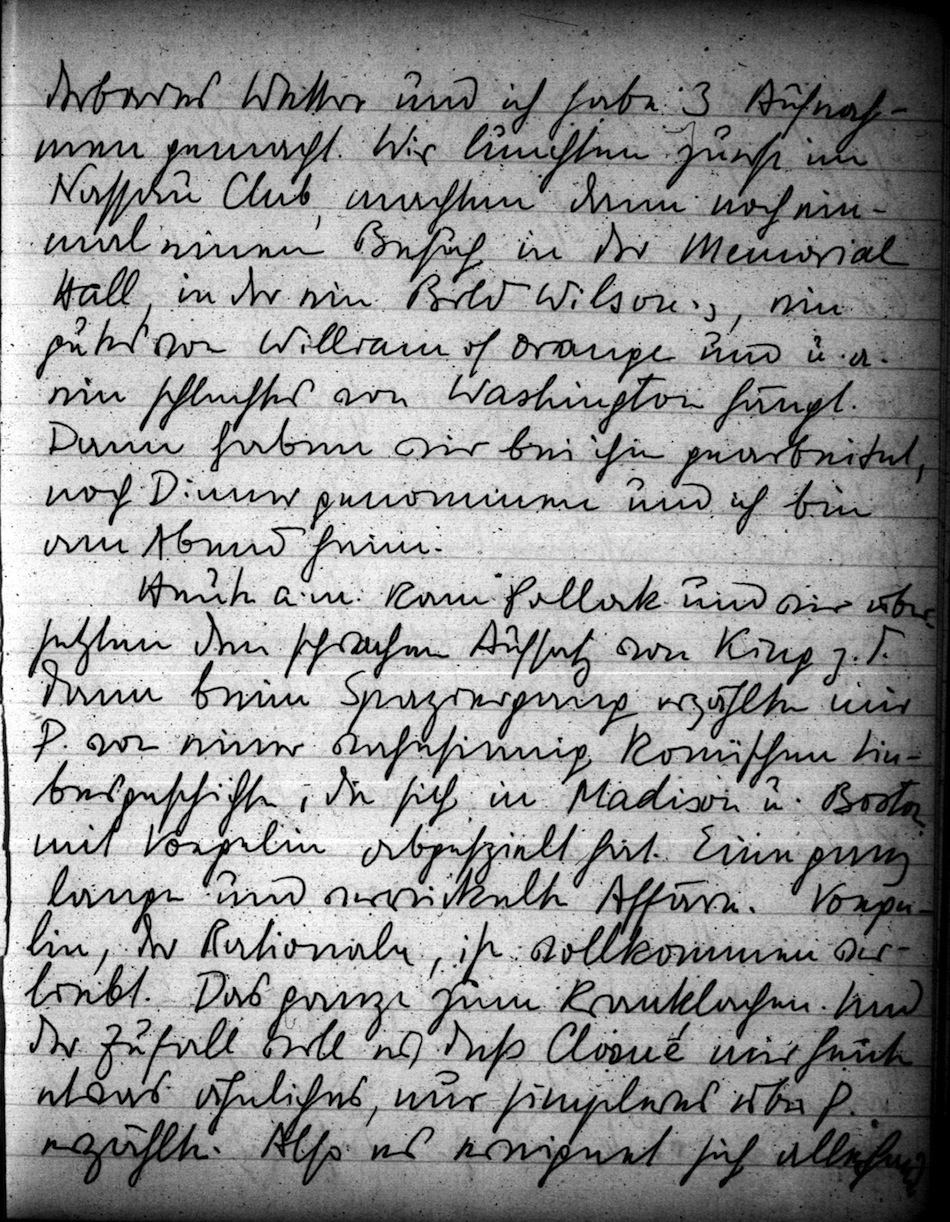 derbares Wetter und ich habe 3 Aufnah-
men gemacht. Wir lunchten zuerst im
Nassau Club, machten dann noch ein-
mal einen Besuch in der Memorial
Hall, in der ein Bild Wilsons, ein
gutes von William of Orange und u. a.
ein schlechtes von Washington hängt.
Dann haben wir bei ihm gearbeitet,
noch Dinner genommen und ich bin
am Abend heim.
Heute a.m. kam Pollak und wir über-
setzten den schwachen Aufsatz von King z. T.
Dann beim Spaziergang erzählte mir
P. von einer wahnsinnig komischen Lie-
besgeschichte, die sich in Madison u. Boston
mit Voegelin abgespielt hat. Eine ganz
lange und verwickelte Affäre. Voege-
lin, der Rationale, ist vollkommen ver-
liebt. Das ganze zum Kranklachen. Und
der Zufall will es, daß mir heute
etwas ähnliches, nur simpleres über P.
erzählte. Also es ereignet sich allerhand